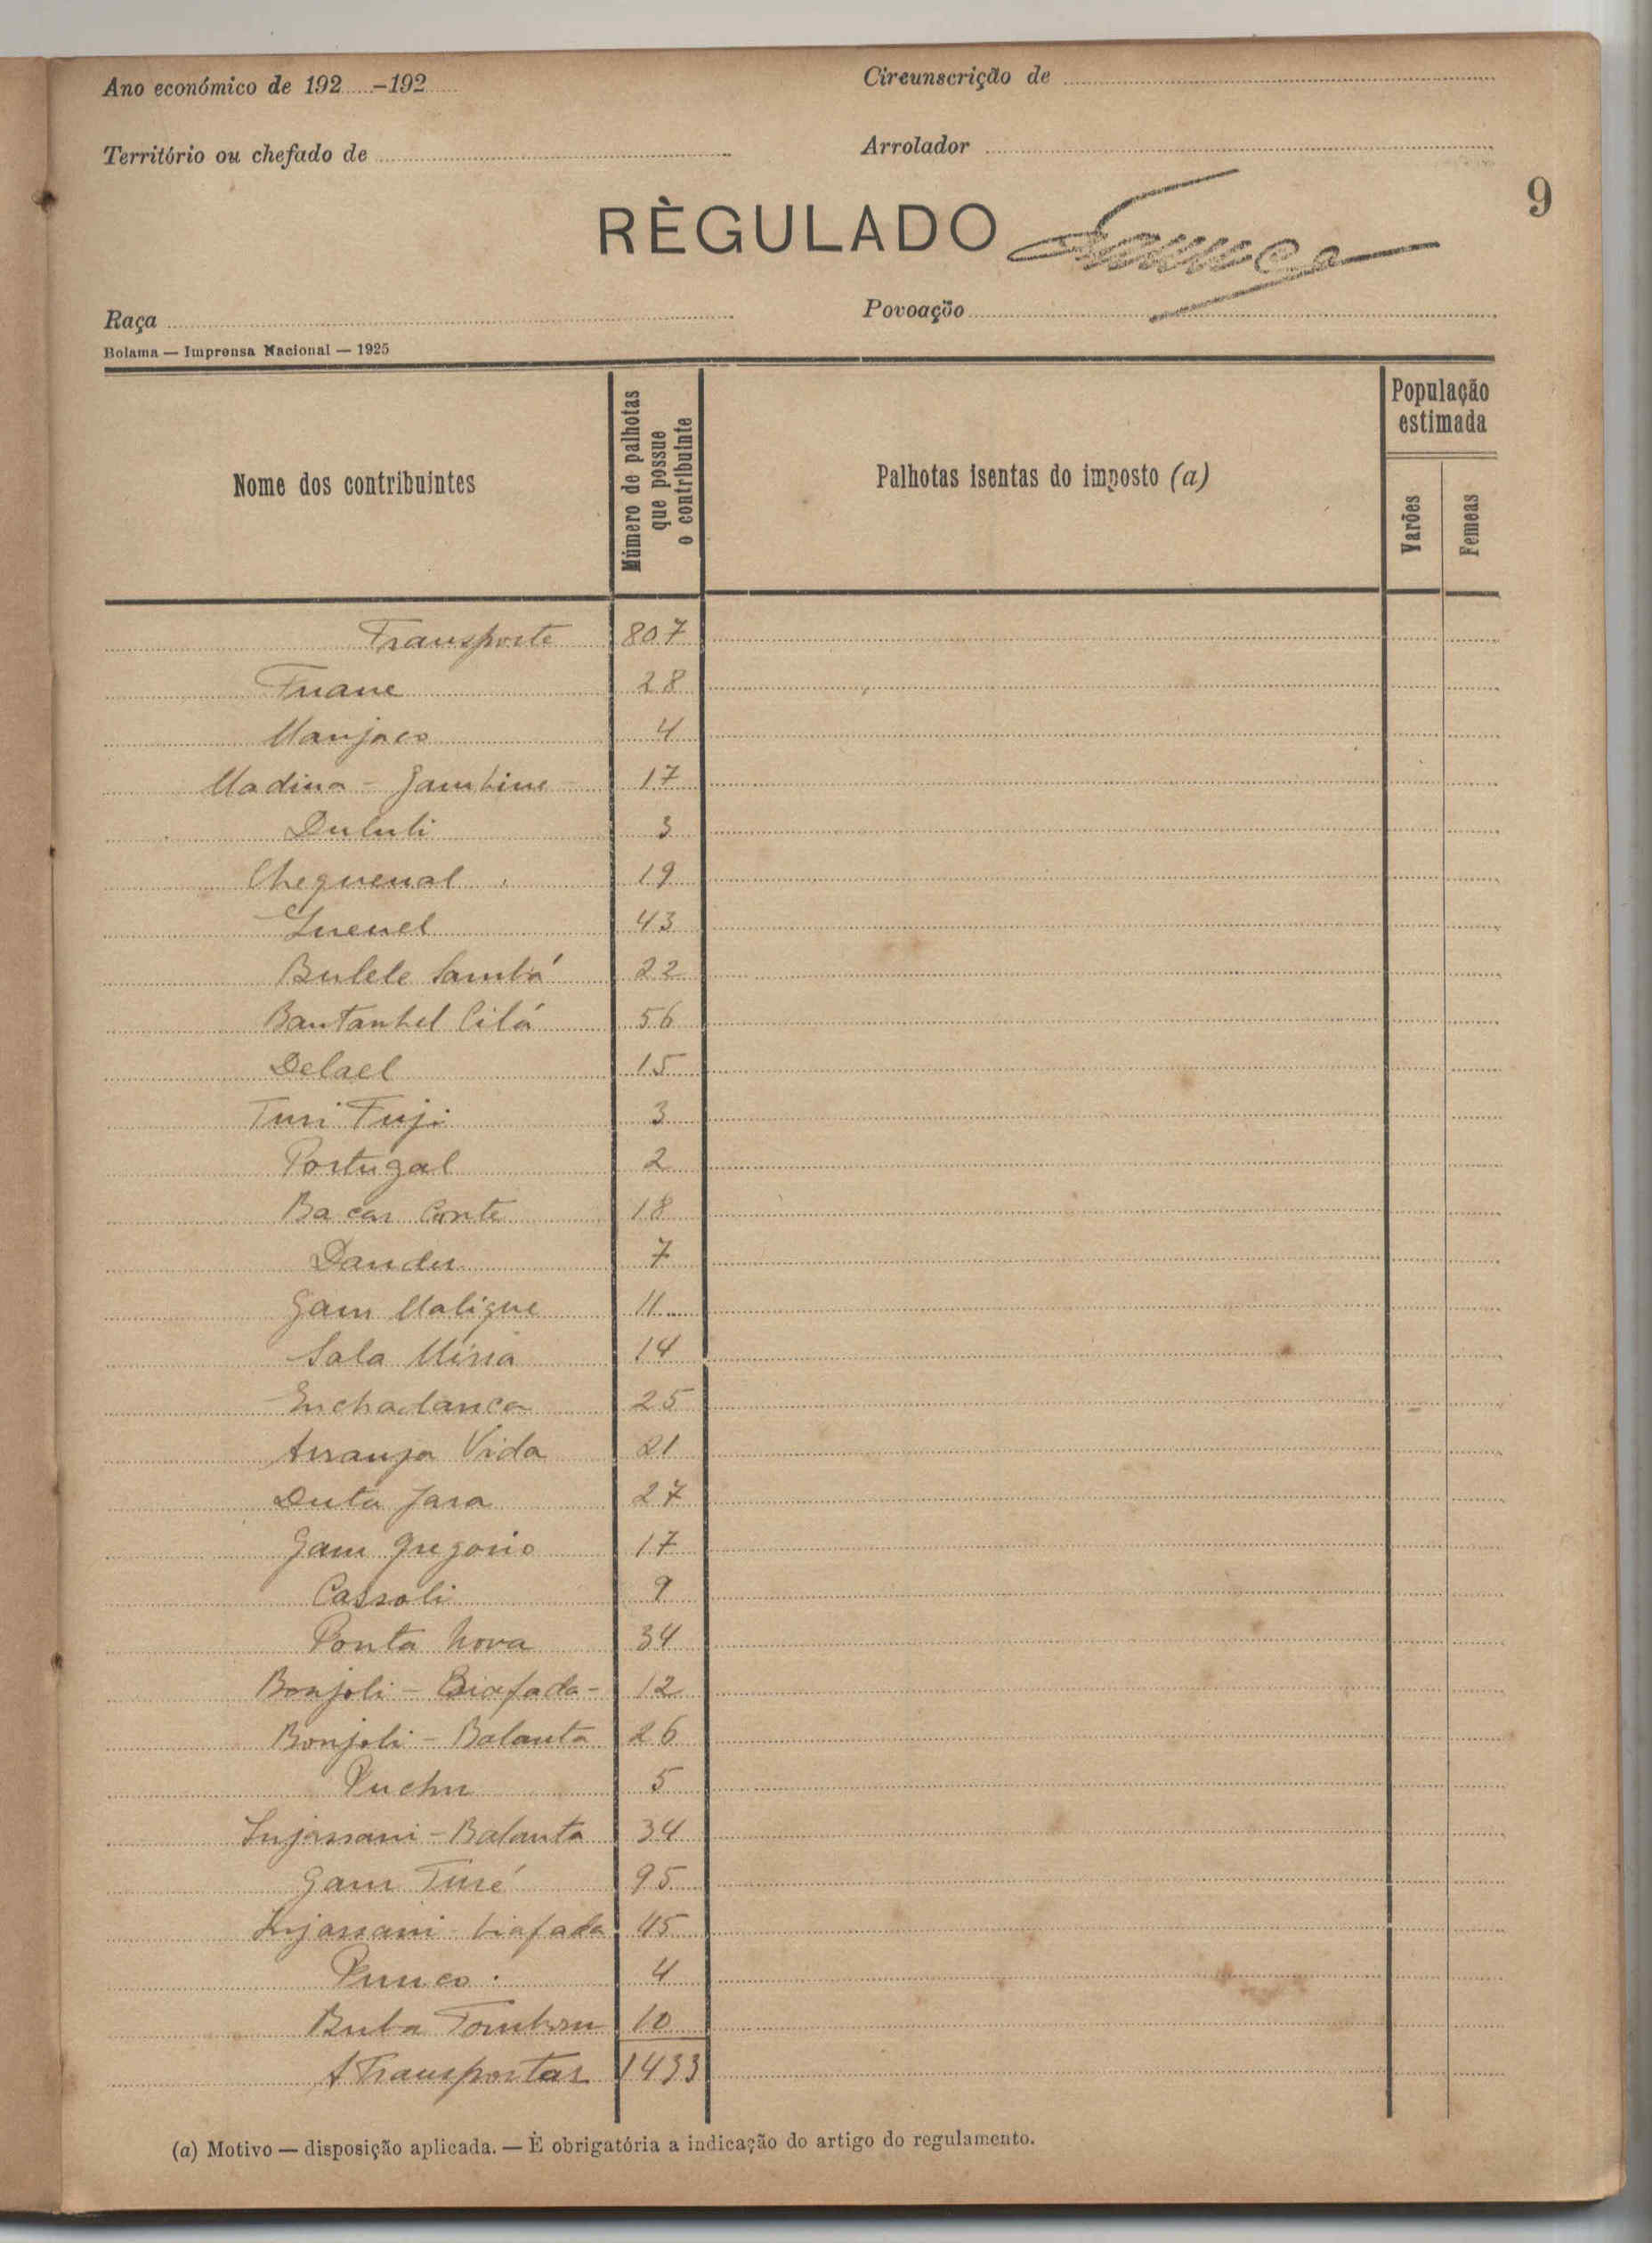 Ano económico de 192......-192......
Circunscrição de
Território ou chefado de
Arrolador
9
RÈGULADO
Raça
Povoação
Bolama — Imprensa Nacional — 1925
Nome dos contribuintes
Número de palhotas que possue o contribuinte
Palhotas isentas do imposto (a)
População estimada
Varões
Femeas
Transporte 807
Fuane 28
Manjaco 4
Madina - Jambine 17
Dululi 3
Chequenal 19
Luenel 43
Bulele Sambá 22
Bantanhel Cilá 56
Delael 15
Turi Fuji 3
Portugal 2
Bacar Conte 18
Dandu 7
Gam Malique 11
Sala Miria 14
Enchadanca 25
Arranja Vida 21
Duta Jara 27
Gam Gregorio 17
Cassoli 9
Ponta Nova 34
Bonjoli - Biafada - 12
Bonjoli - Balanta 26
Puchu 5
Injassani - Balanta 34
Gam Turé 95
Injassani - biafada 45
4
Buba Tombom 10
A Transportar 1433
(a) Motivo — disposição aplicada. — É obrigatória a indicação do artigo do regulamento.